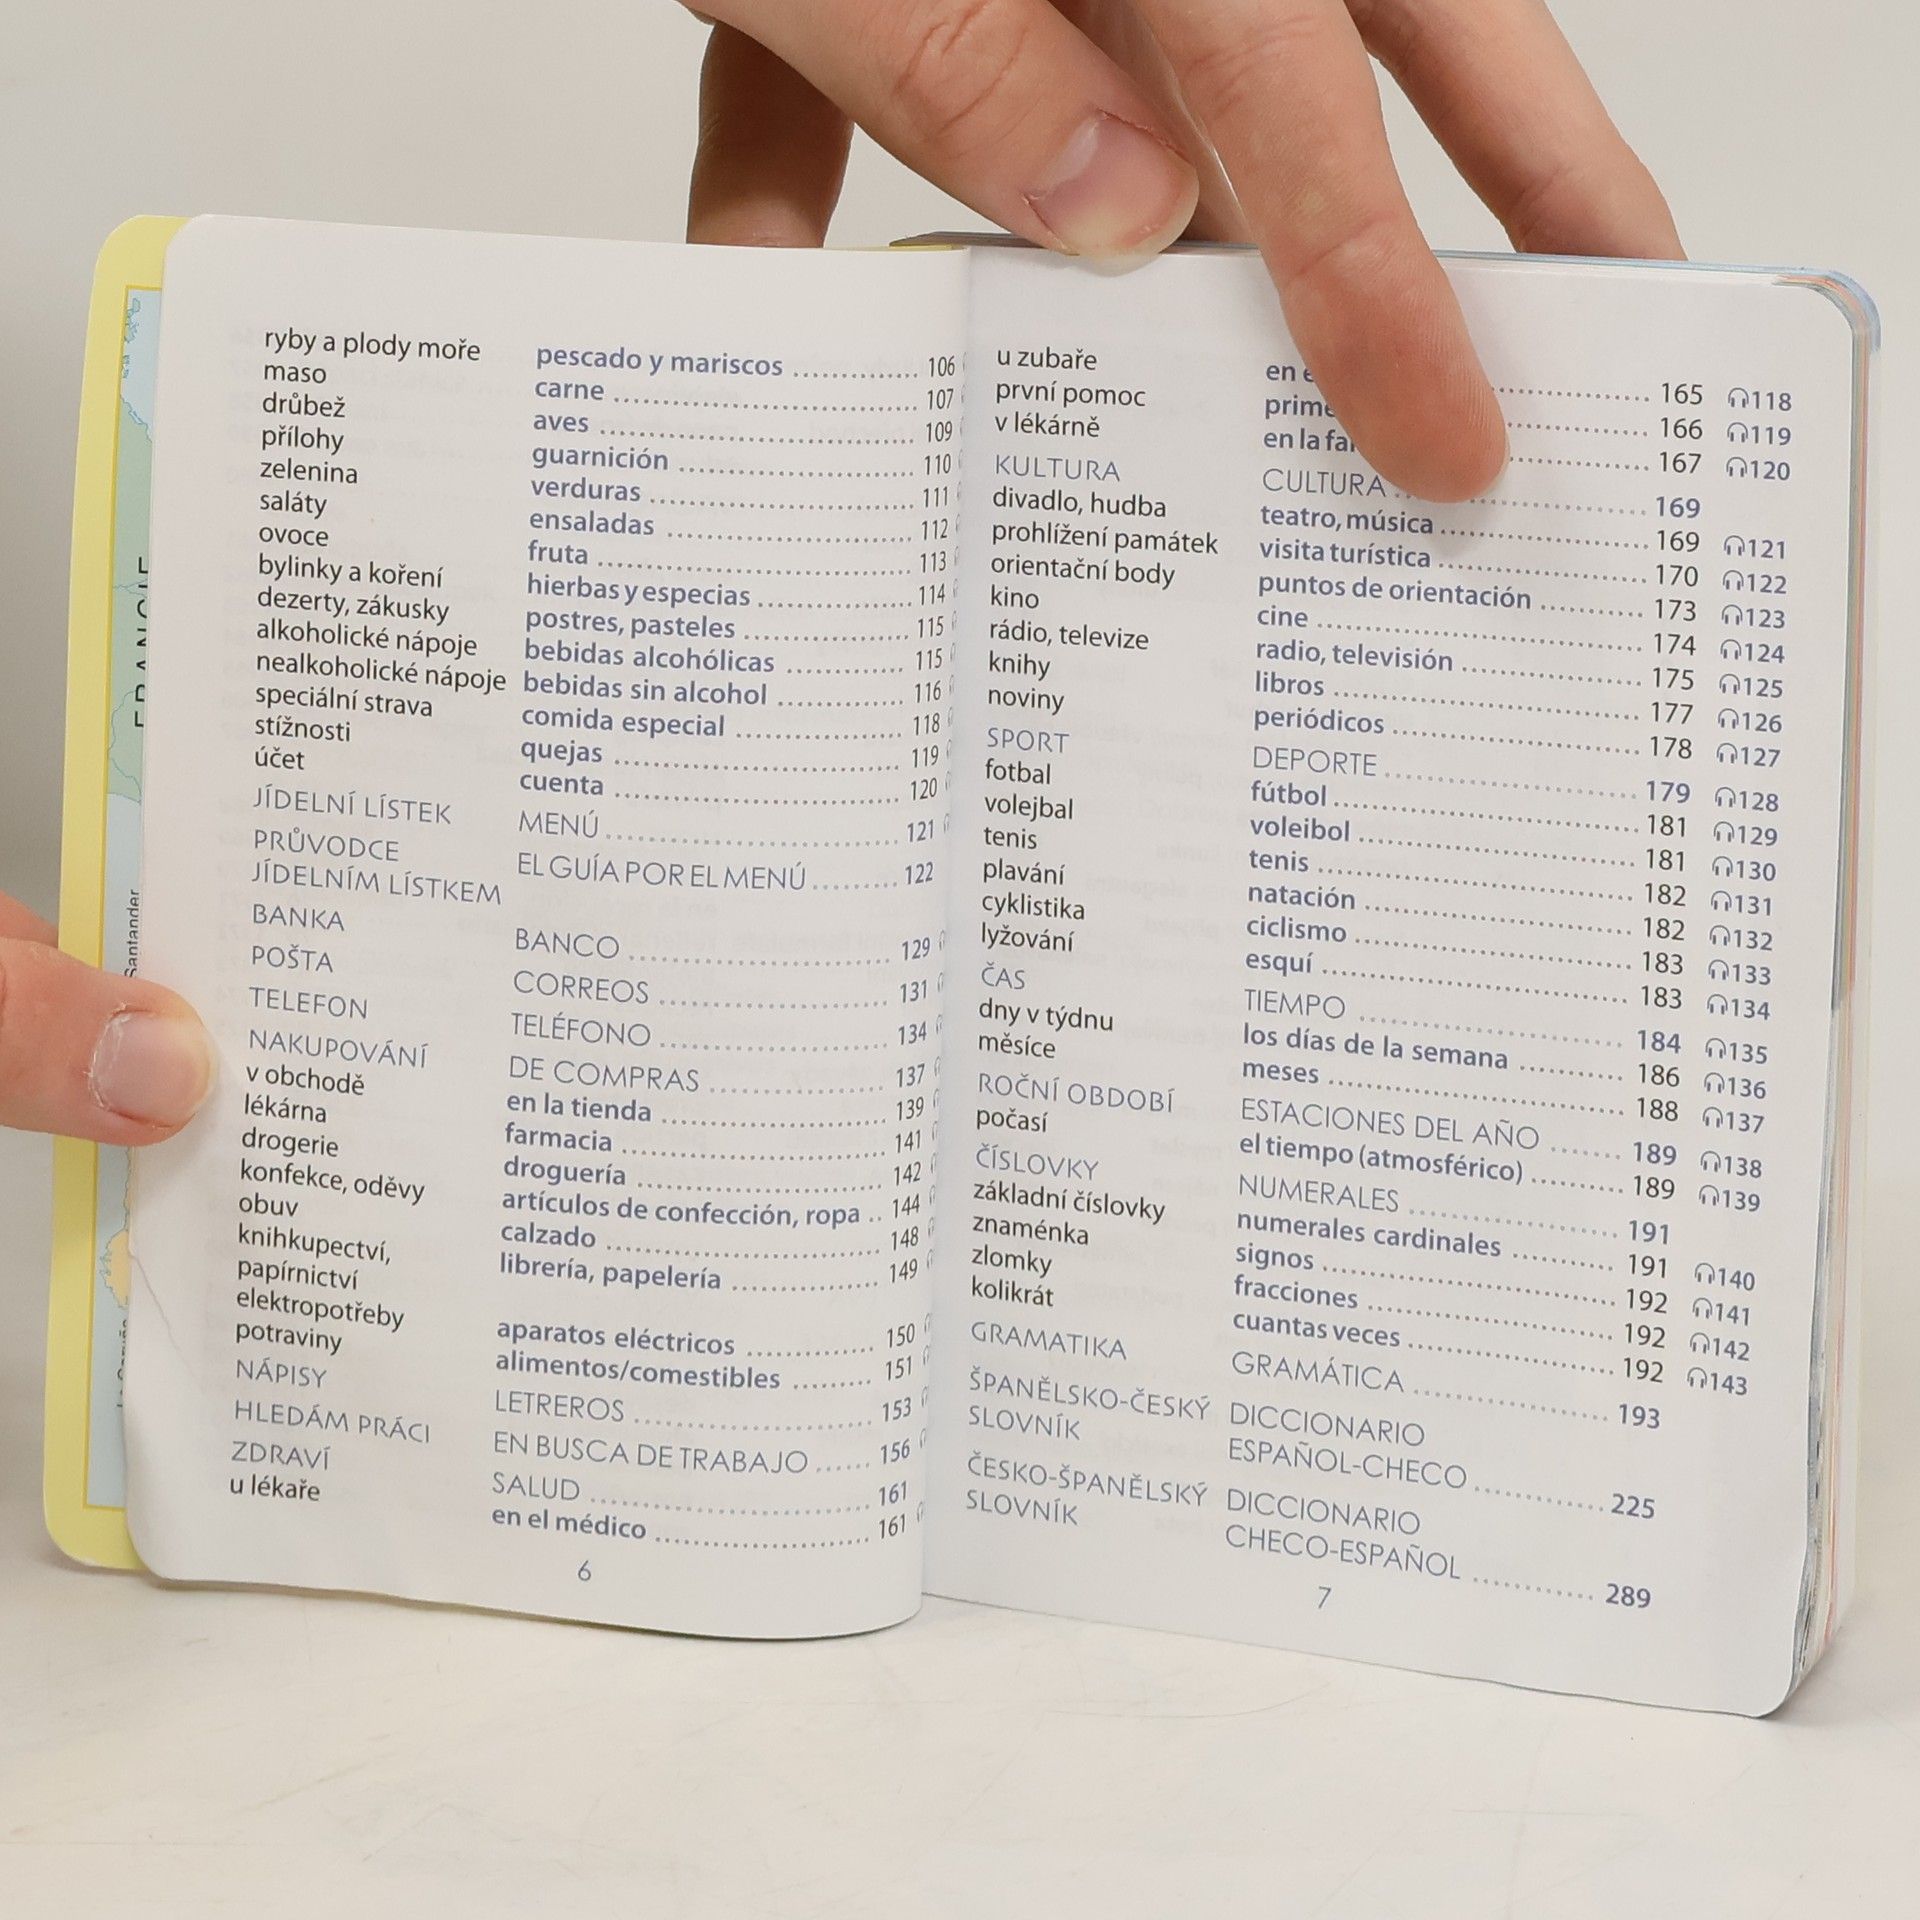 ryby a plody moře pescado y mariscos 106
maso carne 107
drůbež aves 109
přílohy guarnición 110
zelenina verduras 111
saláty ensaladas 112
ovoce fruta 113
bylinky a koření hierbas y especias 114
dezerty, zákusky postres, pasteles 115
alkoholické nápoje bebidas alcohólicas 115
nealkoholické nápoje bebidas sin alcohol 116
speciální strava comida especial 118
stížnosti quejas 119
účet cuenta 120
JÍDELNÍ LÍSTEK MENÚ 121
PRŮVODCE
JÍDELNÍM LÍSTKEM EL GUÍA POR EL MENÚ 122
BANKA BANCO 129
POŠTA CORREOS 131
TELEFON TELÉFONO 134
NAKUPOVÁNÍ DE COMPRAS 137
v obchodě en la tienda 139
lékárna farmacia 141
drogerie droguería 142
konfekce, oděvy artículos de confección, ropa 144
obuv calzado 148
knihkupectví,
papírnictví librería, papelería 149
elektropotřeby aparatos eléctricos 150
potraviny alimentos/comestibles 151
NÁPISY LETREROS 153
HLEDÁM PRÁCI EN BUSCA DE TRABAJO 156
ZDRAVÍ SALUD 161
u lékaře en el médico 161
6
u zubaře en 165 118
první pomoc 166 119
v lékárně en la 167 120
KULTURA CULTURA 169
divadlo, hudba teatro, música 169 121
prohlížení památek visita turística 170 122
orientační body puntos de orientación 173 123
kino cine 174 124
rádio, televize radio, televisión 175 125
knihy libros 177 126
noviny periódicos 178 127
SPORT DEPORTE 179 128
fotbal fútbol 181 129
volejbal voleibol 181 130
tenis tenis 182 131
plavání natación 182 132
cyklistika ciclismo 183 133
lyžování esquí 183 134
ČAS TIEMPO 184 135
dny v týdnu los días de la semana 186 136
měsíce meses 188 137
ROČNÍ OBDOBÍ ESTACIONES DEL AÑO 189 138
počasí el tiempo (atmosférico) 189 139
ČÍSLOVKY NUMERALES 191
základní číslovky numerales cardinales 191 140
znaménka signos 192 141
zlomky fracciones 192 142
kolikrát cuantas veces 192 143
GRAMATIKA GRAMÁTICA 193
ŠPANĚLSKO-ČESKÝ DICCIONARIO
SLOVNÍK ESPAÑOL-CHECO 225
ČESKO-ŠPANĚLSKÝ DICCIONARIO
SLOVNÍK CHECO-ESPAÑOL 289
7
Santander